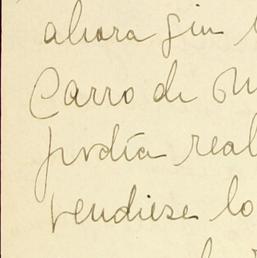 ahora sin
Carro de
podía real
vendiese lo